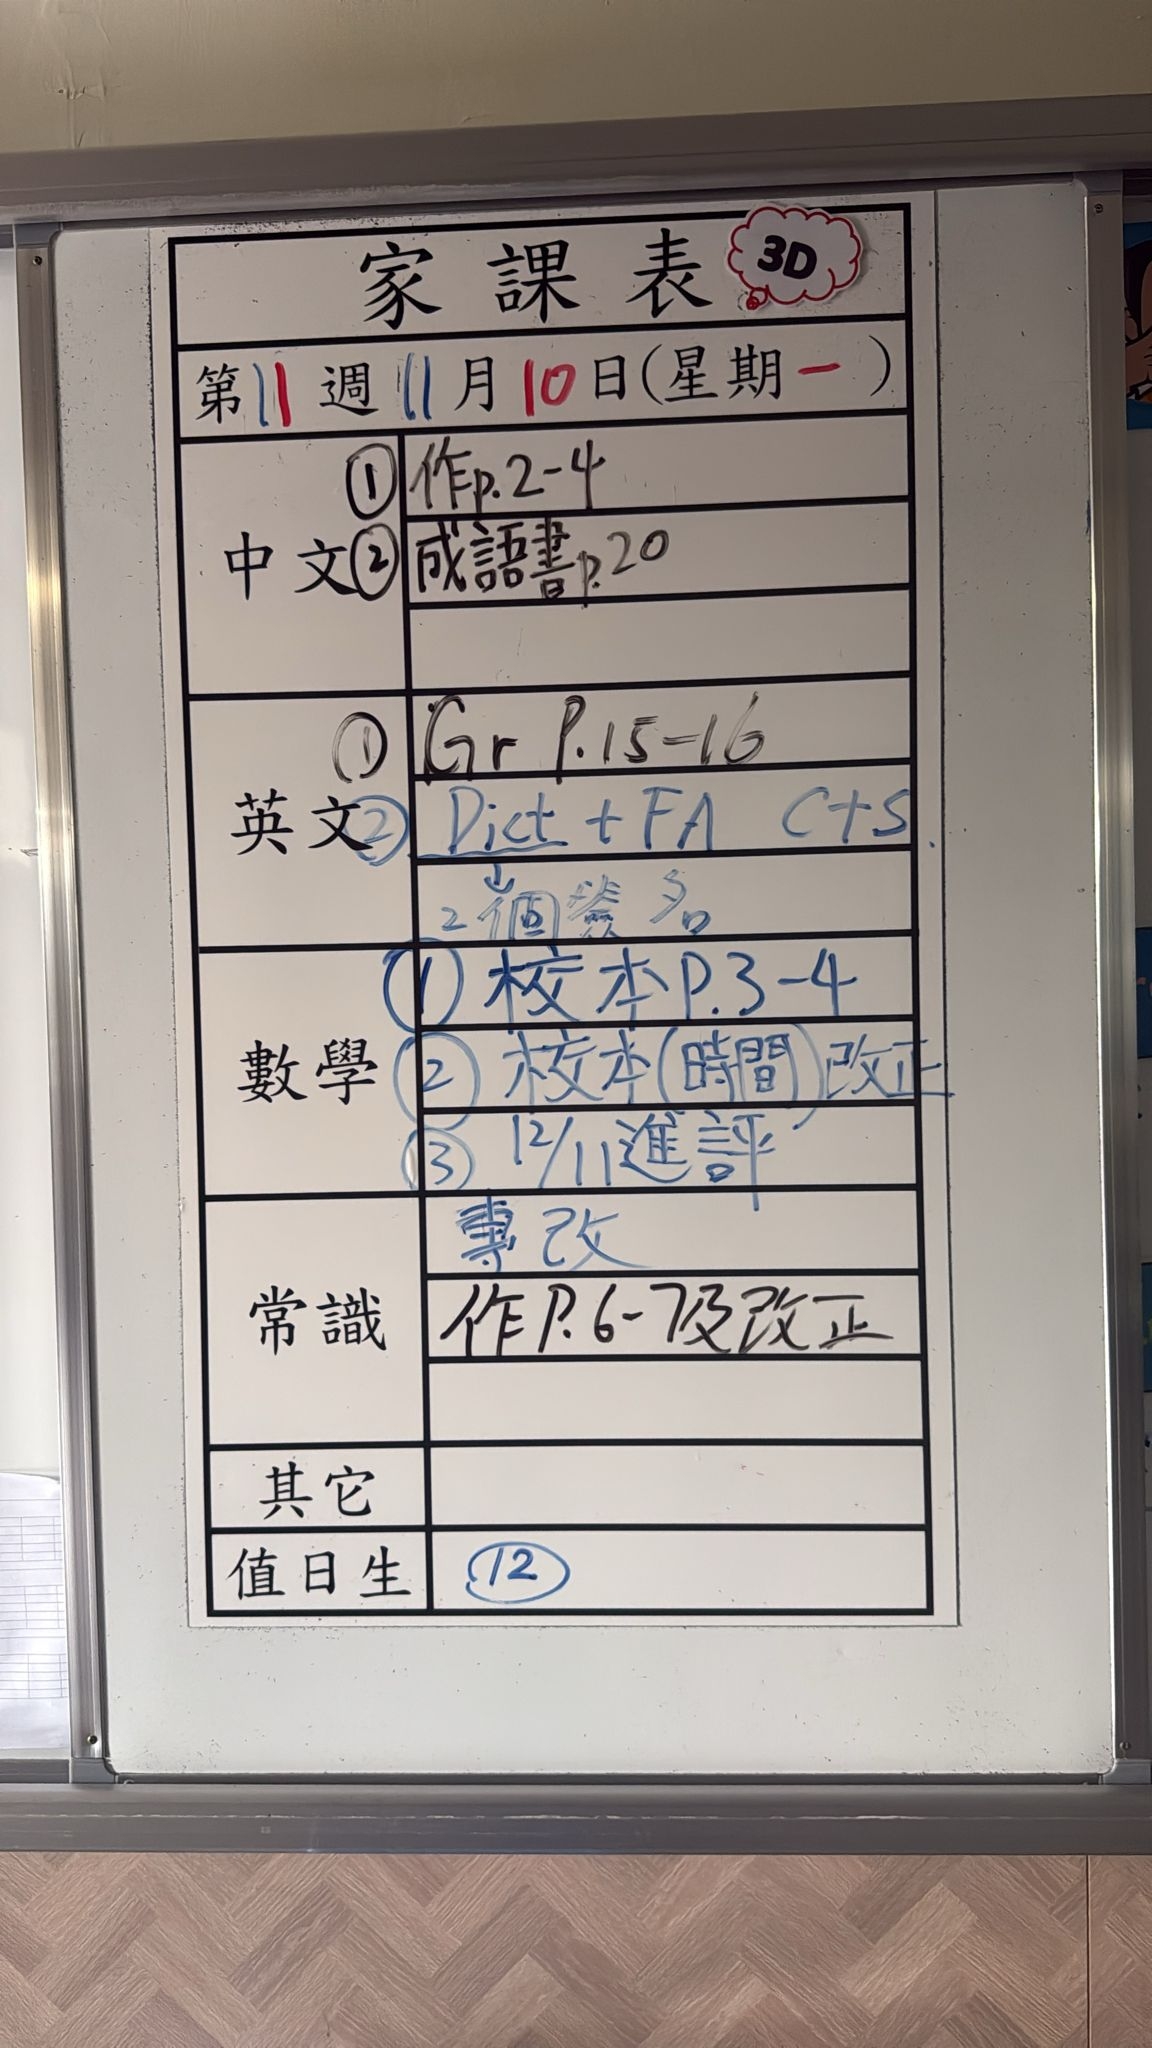 家課表 3D
第11週11月10日(星期一)
中文
① 作p.2-4
② 成語書p.20
英文
① Gr P.15-16
② Dict + FA C+S
↓
2個簽名
數學
① 校本P.3-4
② 校本(時間)改正
③ 12/11進評
常識
專改
作P.6-7及改正
其它
值日生 12